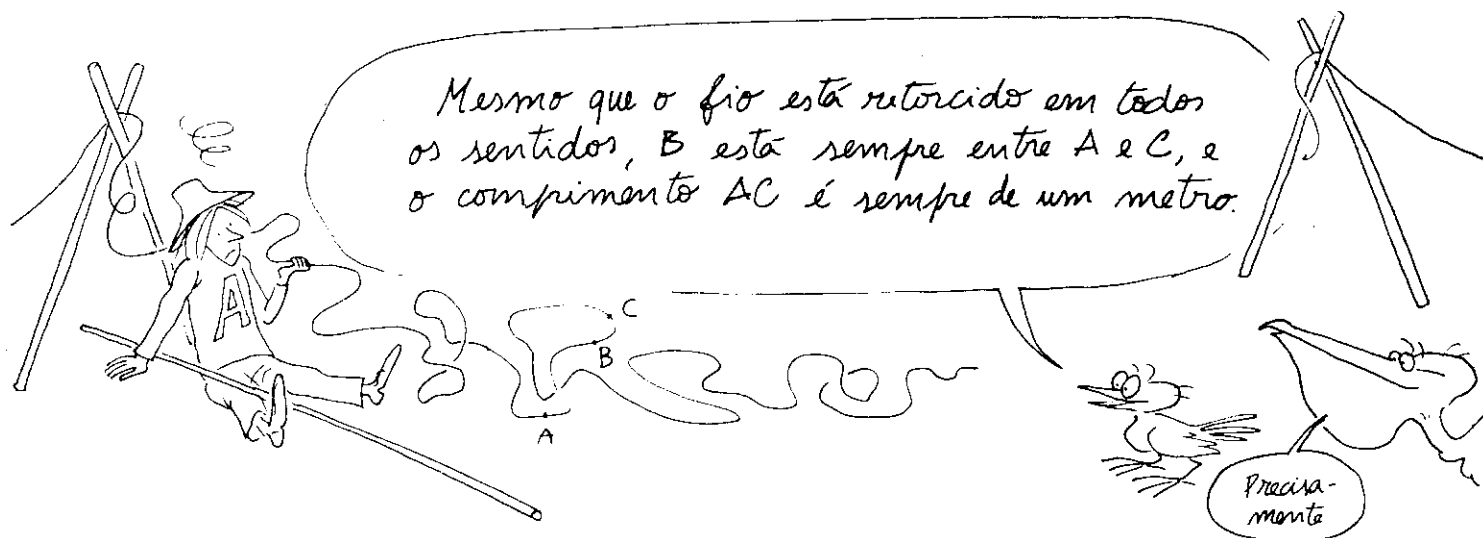 Mesmo que o fio está retorcido em todos
os sentidos, B está sempre entre A e C, e
o comprimento AC é sempre de um metro.
A
C
B
A
Precisa-
mente